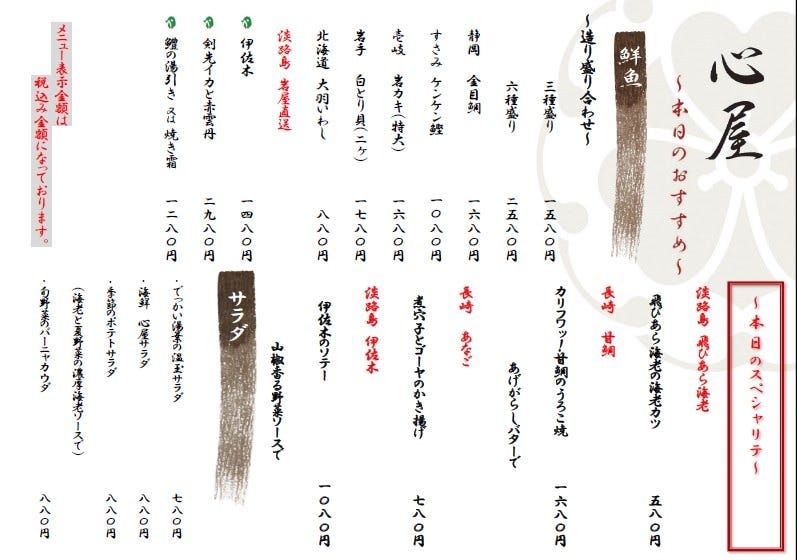 心屋
～本日のおすすめ～
鮮魚
～造り盛り合わせ～
三種盛り 一五八〇円
六種盛り 二五八〇円
静岡 金目鯛 一六八〇円
すさみ ケンケン鰹 一〇八〇円
壱岐 岩カキ(特大) 一六八〇円
岩手 白とり貝(二ヶ) 一七八〇円
北海道 大羽いわし 八八〇円
淡路島 岩屋直送
伊佐木 一四八〇円
剣先イカと赤雲丹 二九八〇円
鱧の湯引き 又は 焼き霜 一二八〇円
メニュー表示金額は
税込み金額になっております。
～本日のスペシャリテ～
淡路島 飛びあら海老
飛びあら海老の海老カツ 五八〇円
長崎 甘鯛
カリフワッ！甘鯛のうろこ焼
あげがらしバターで 一六八〇円
長崎 あなご
煮穴子とゴーヤのかき揚げ 七八〇円
淡路島 伊佐木
伊佐木のソテー
山椒香る野菜ソースで 一〇八〇円
サラダ
・でっかい湯葉の温玉サラダ 七八〇円
・海鮮 心屋サラダ 八八〇円
・季節のポテトサラダ 八八〇円
(海老と夏野菜の濃厚海老ソースで)
・旬野菜のバーニャカウダ 八八〇円